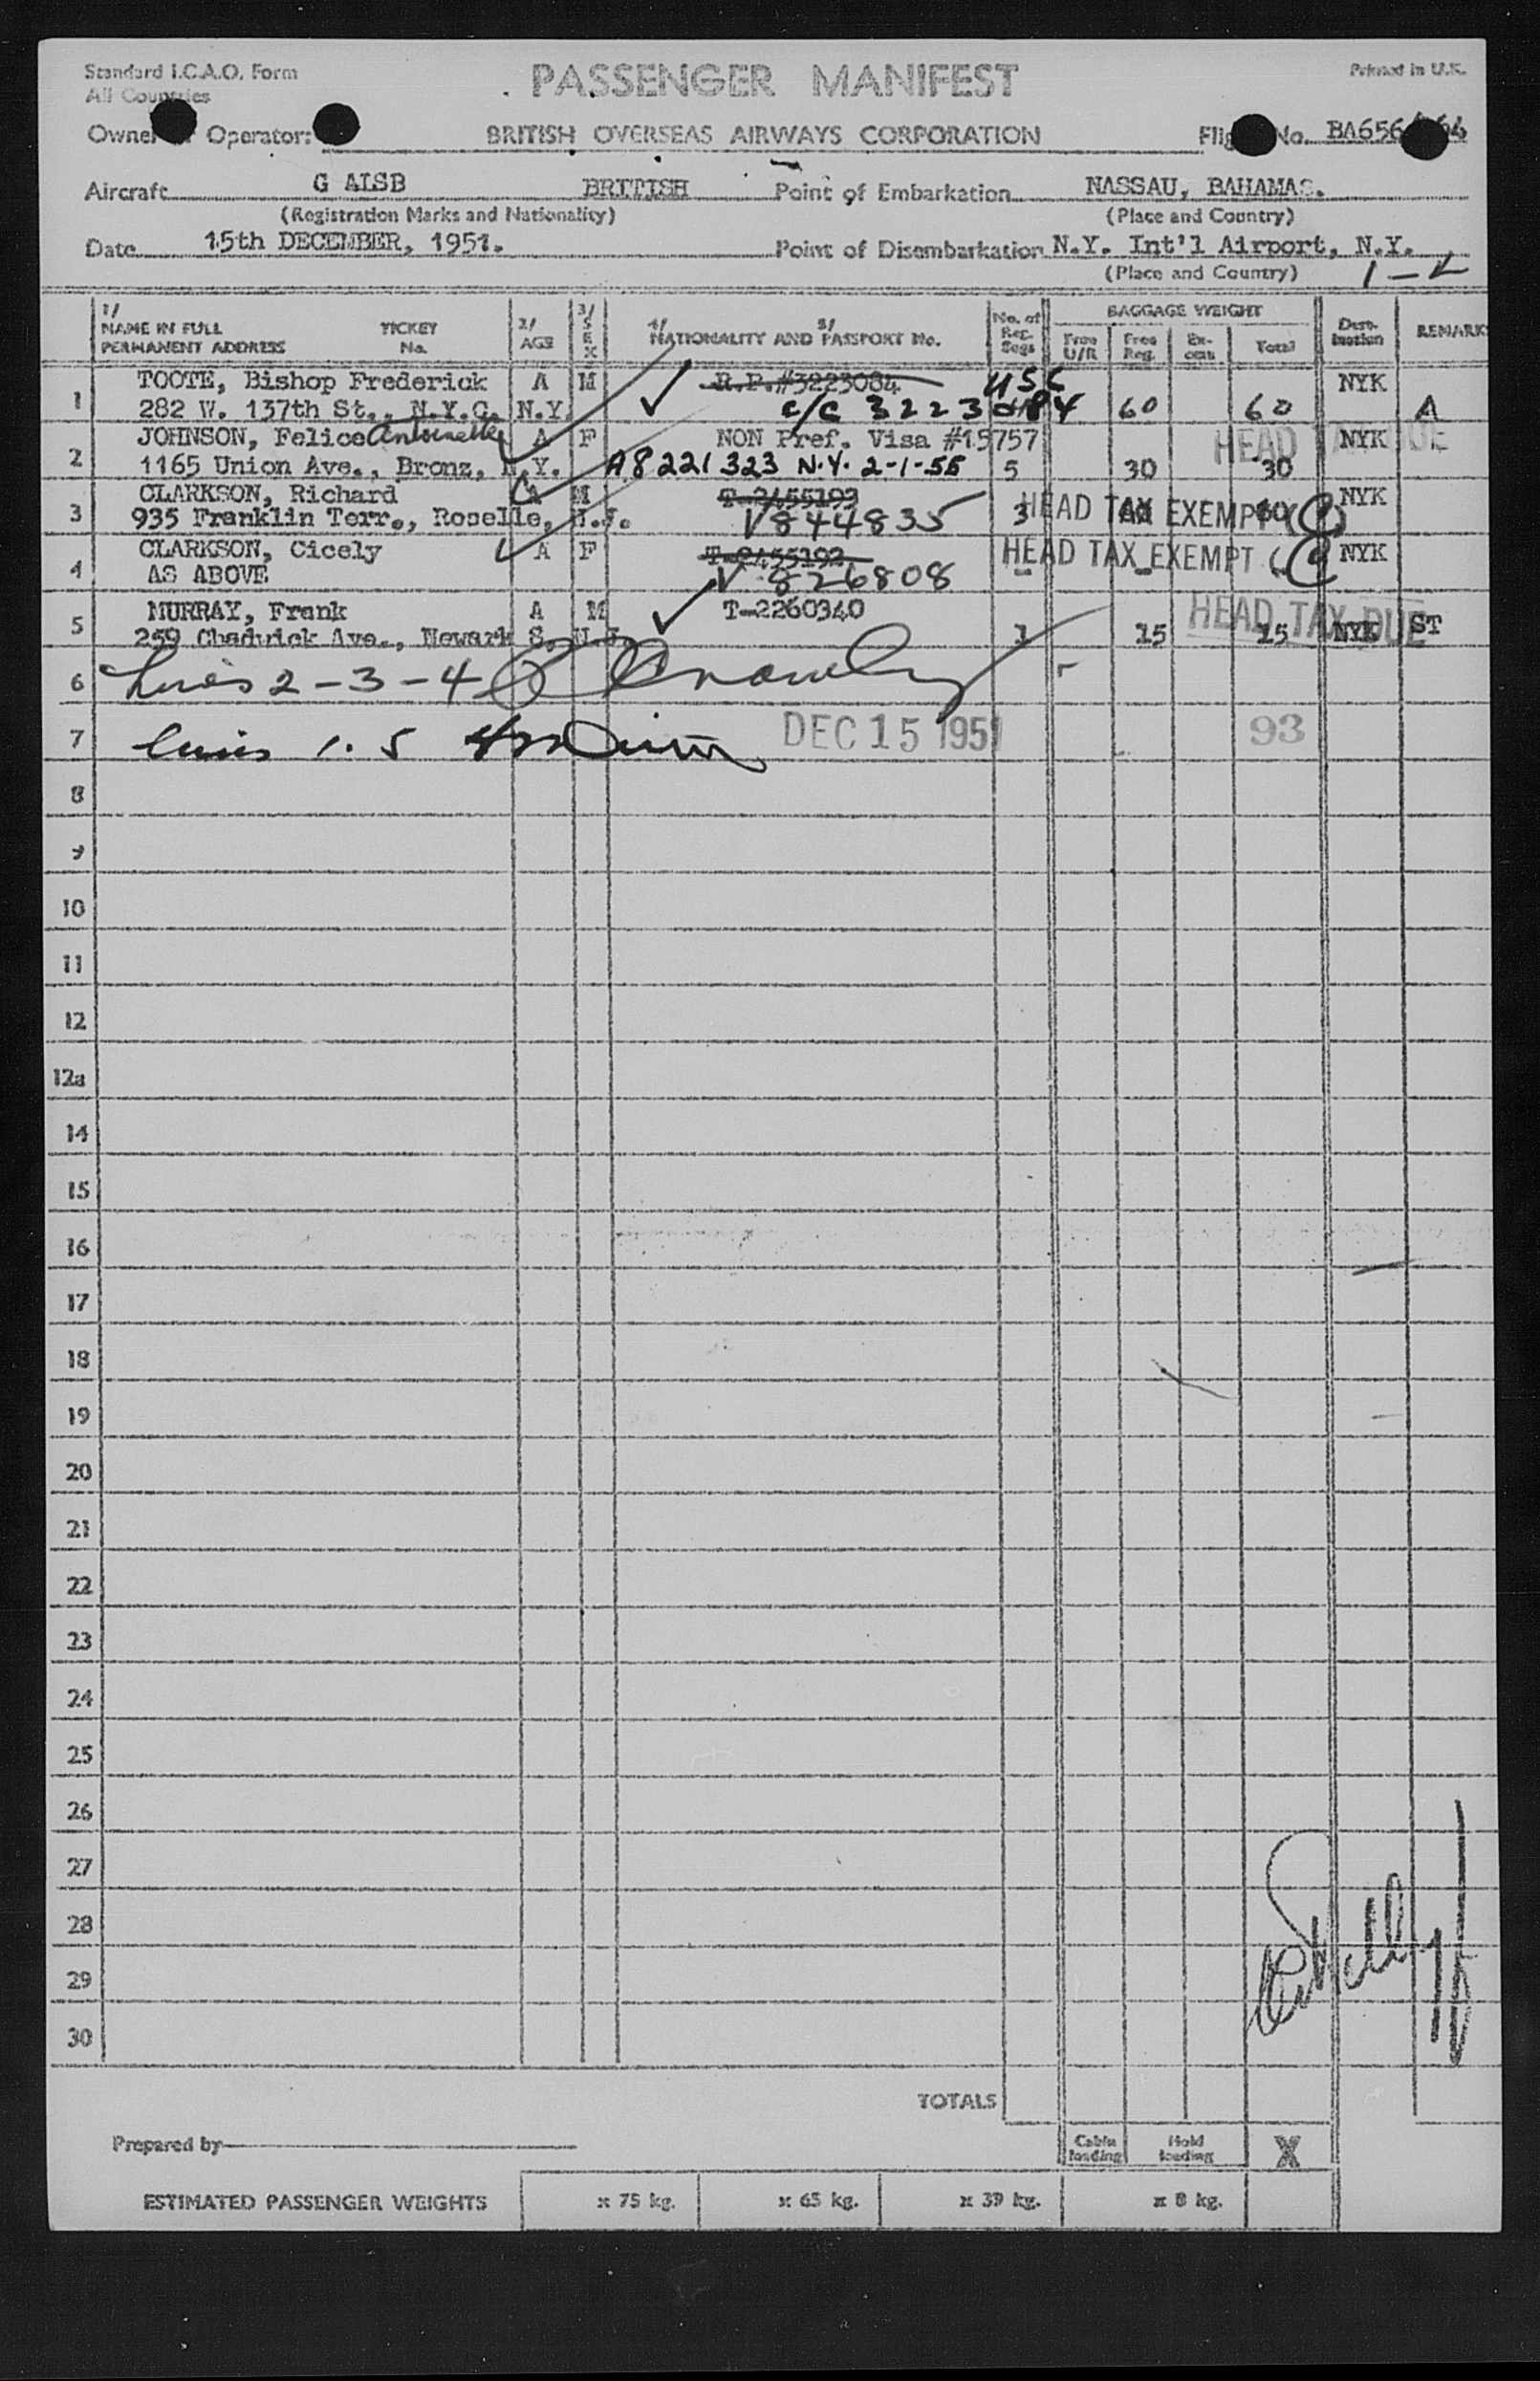 Standard I.C.A.O. Form
All Countries
PASSENGER MANIFEST
Printed in U.K.
Operator: BRITISH OVERSEAS AIRWAYS CORPORATION
No. BA656
Aircraft G ALSB BRITISH Point of Embarkation NASSAU, BAHAMAS.
(Registration Marks and Nationality) (Place and Country)
Date 15th DECEMBER, 1951. Point of Disembarkation N.Y. Int'l Airport, N.Y.
(Place and Country) 1 - L
1/ NAME IN FULL PERMANENT ADDRESS TICKET No. 2/ AGE 3/ SEX 4/ 5/ NATIONALITY AND PASSPORT No. No. of Reg. Bags BAGGAGE WEIGHT Free U/R Free Reg. Ex-cess Total Dest-ination REMARKS
1 TOOTE, Bishop Frederick A M R.P.#3223084 USC NYK
282 W. 137th St., N.Y.C. N.Y. c/c 3223084 60 60 A
2 JOHNSON, Felice Antoinette A F NON Pref. Visa #15757 HEAD TAX DUE NYK
1165 Union Ave., Bronz, N.Y. A8221323 N.Y. 2-1-55 5 30 30
3 CLARKSON, Richard A M T-2455193 NYK
935 Franklin Terr., Roselle, N.J. V844835 3 HEAD TAX EXEMPT
4 CLARKSON, Cicely A F T-2455192 HEAD TAX EXEMPT NYK
AS ABOVE V 826808
5 MURRAY, Frank A M T-2260340 HEAD TAX DUE
259 Chadwick Ave., Newark S, N.J. 1 15 15 NYK ST
6 Lines 2-3-4
7 Lines 1. 5 DEC 15 1951 93
8
9
10
11
12
12a
14
15
16
17
18
19
20
21
22
23
24
25
26
27
28
29
30
TOTALS
Prepared by
Cabin loading Hold loading X
ESTIMATED PASSENGER WEIGHTS x 75 kg. x 65 kg. x 39 kg. x 8 kg.